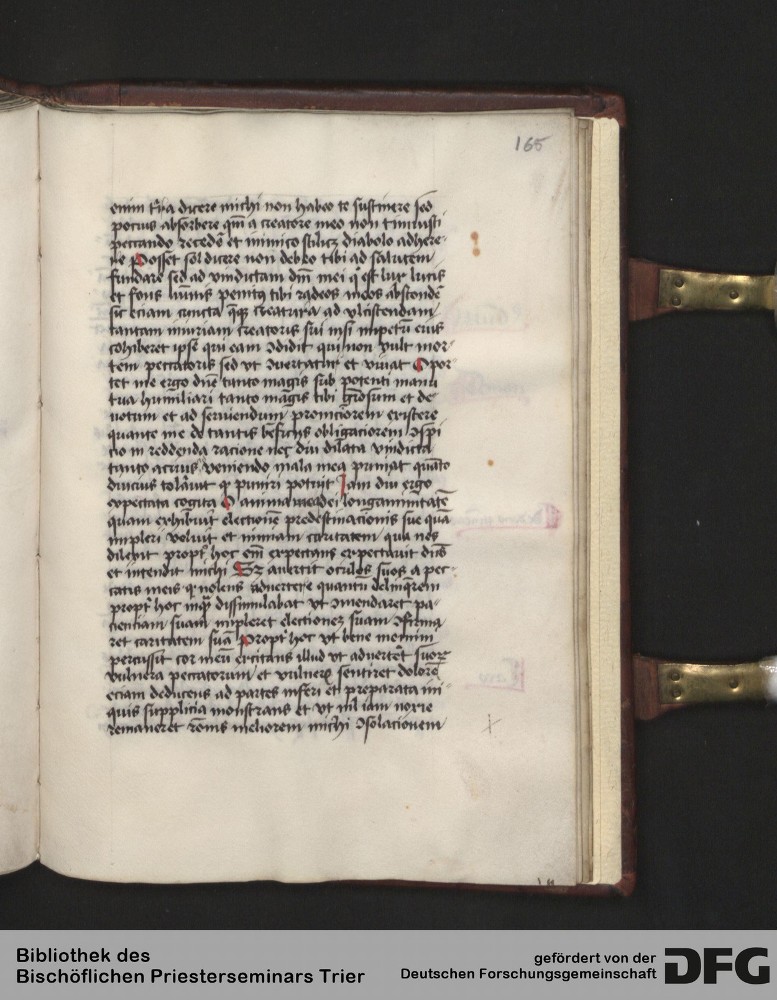 165
enim t'ra dicere michi non habeo te sustinere sed
pocius absorbere qm a creatore meo non timuisti
peccando recede et inimico scilicz diabolo adhere-
re Posset sol dicere non debeo tibi ad salutem
fundare sed ad vindictam dni mei q est lux lucis
et fons luminis penitus tibi radeos meos absconde
sic eciam cuncta creatura ad vlciscendam
tantam iniuriam creatoris sui nisi impetu eius
cohiberet ipse qui eam condidit qui non vult mor
tem peccatoris sed vt conuertatur et viuat Opor
tet me ergo dne tanto magis sub potenti manu
tua humiliari tanto magis tibi grosum et de
uotum et ad seruiendum promciorem existere
quanto me de tantis bnficiis obligaciorem conspi
cio in reddenda racione nec diu dilata vindicta
tanto acrius veniendo mala mea primat quanto
diucius tolerauit q puniri potuit Jam diu ergo
expectata cogita O anima mea dei longanimitate
quam exhibuit electione predestinacionis sue qua
impleri voluit et nimiam caritatem qua nos
dilexit propt hoc em expectans expectauit dns
et intendit michi Sz auertit oculos suos a pec
catis meis q nolens aduertere quantu delinqrem
propt hoc inqm dissimulabat vt comendaret pa-
cienciam suam impleret electionez suam confirma
ret caritatem sua Propt hoc vt bene memini
percussit cor meu excitans illud vt aduertet suorz
vulnera peccatorum et vulnerz sentiret dolore
eciam deducens ad partes inferi et preparata ini
quis supplicia monstrans et vt nil iam noxie
remaneret meliorem michi consolacionem
Bibliothek des
Bischöflichen Priesterseminars Trier
gefördert von der
Deutschen Forschungsgemeinschaft
DFG